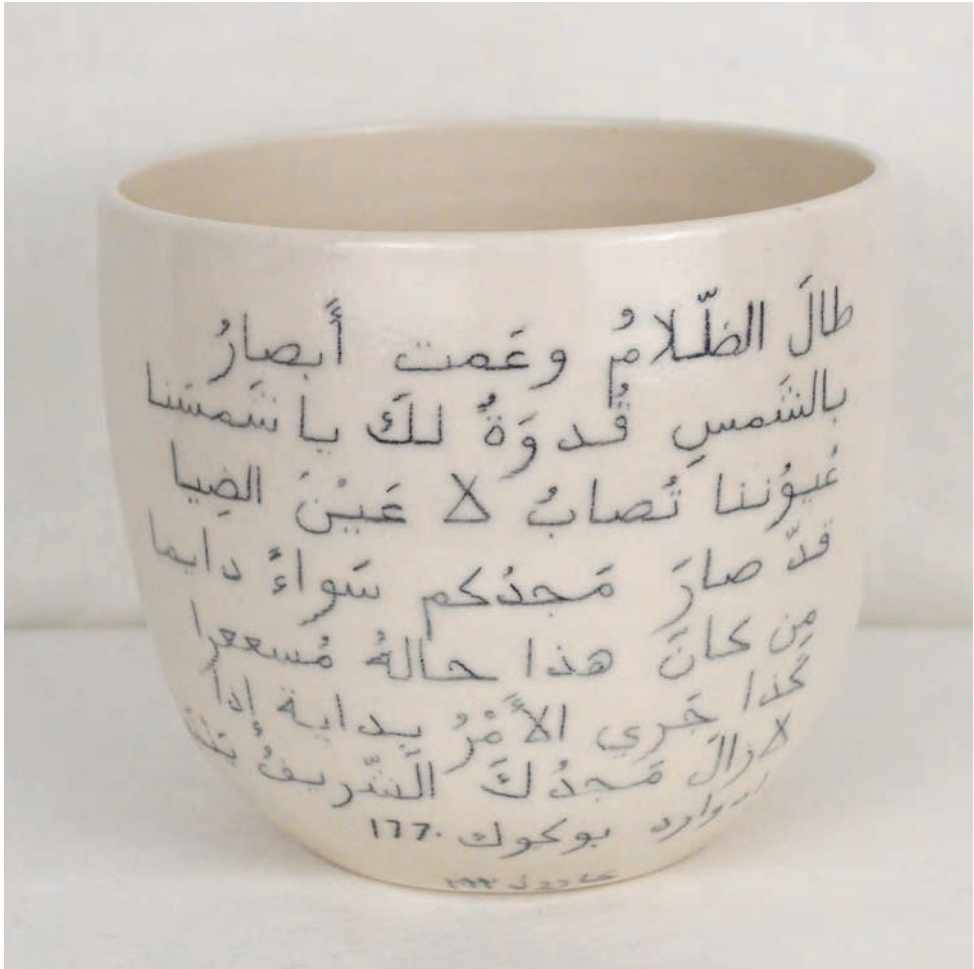 طالَ الظّلامُ وعَمت أَبصارُ
بالشَمسِ قُدوَةٌ لكَ يا شَمسَنا
عُيوُننا تُصابُ لا عَيْنَ الضِيا
قدّ صارَ مَجدُكم سَواءً دايما
مِن كانَ هذا حالهُ مُسععرا
كَذا جَري الأَمْرُ بداية إذا
لازالَ مَجدُكَ الشَّريفُ
ادوارد بوكوك ١٦٦٠